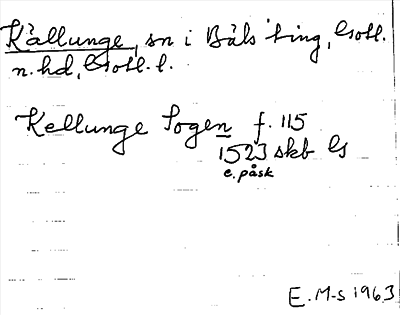 Källunge, sn i Bäls ting, Gotl.
n. hd, Gotl. l.
Kellunge Sogen f. 115
1523 skb G
e. påsk
E. M-s 1963